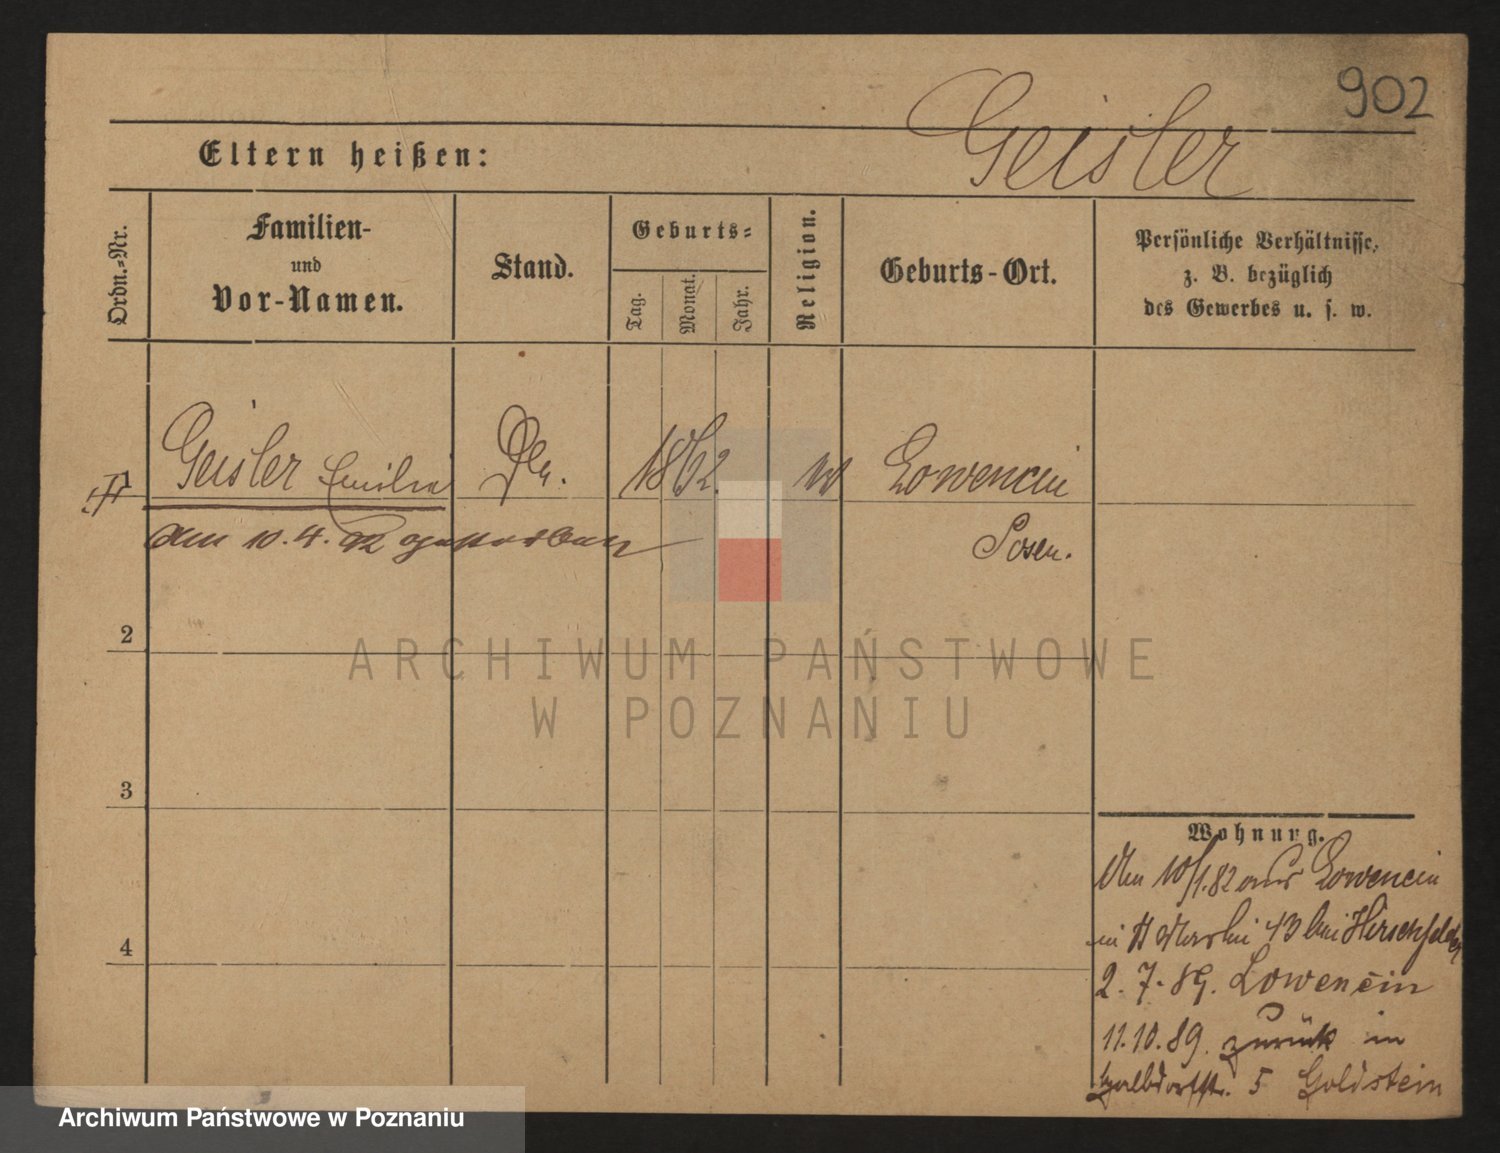 902
Geisler
Eltern heißen:
Ordn.=Nr.
Familien-
und
Vor-Namen.
Stand.
Geburts=
Tag.
Monat.
Jahr.
Religion.
Geburts-Ort.
Persönliche Verhältnisse,
z. B. bezüglich
des Gewerbes u. s. w.
Geisler Emilie
1862
Lowencin
Posen.
am 10.4.92 gestorben
2
3
4
Wohnung.
10/1.82 aus Lowencin
13 bei Hirschfelder
2.7.89. Lowencin
11.10.89. zurück in
Halbdorfstr. 5 Goldstein
ARCHIWUM PAŃSTWOWE
W POZNANIU
Archiwum Państwowe w Poznaniu